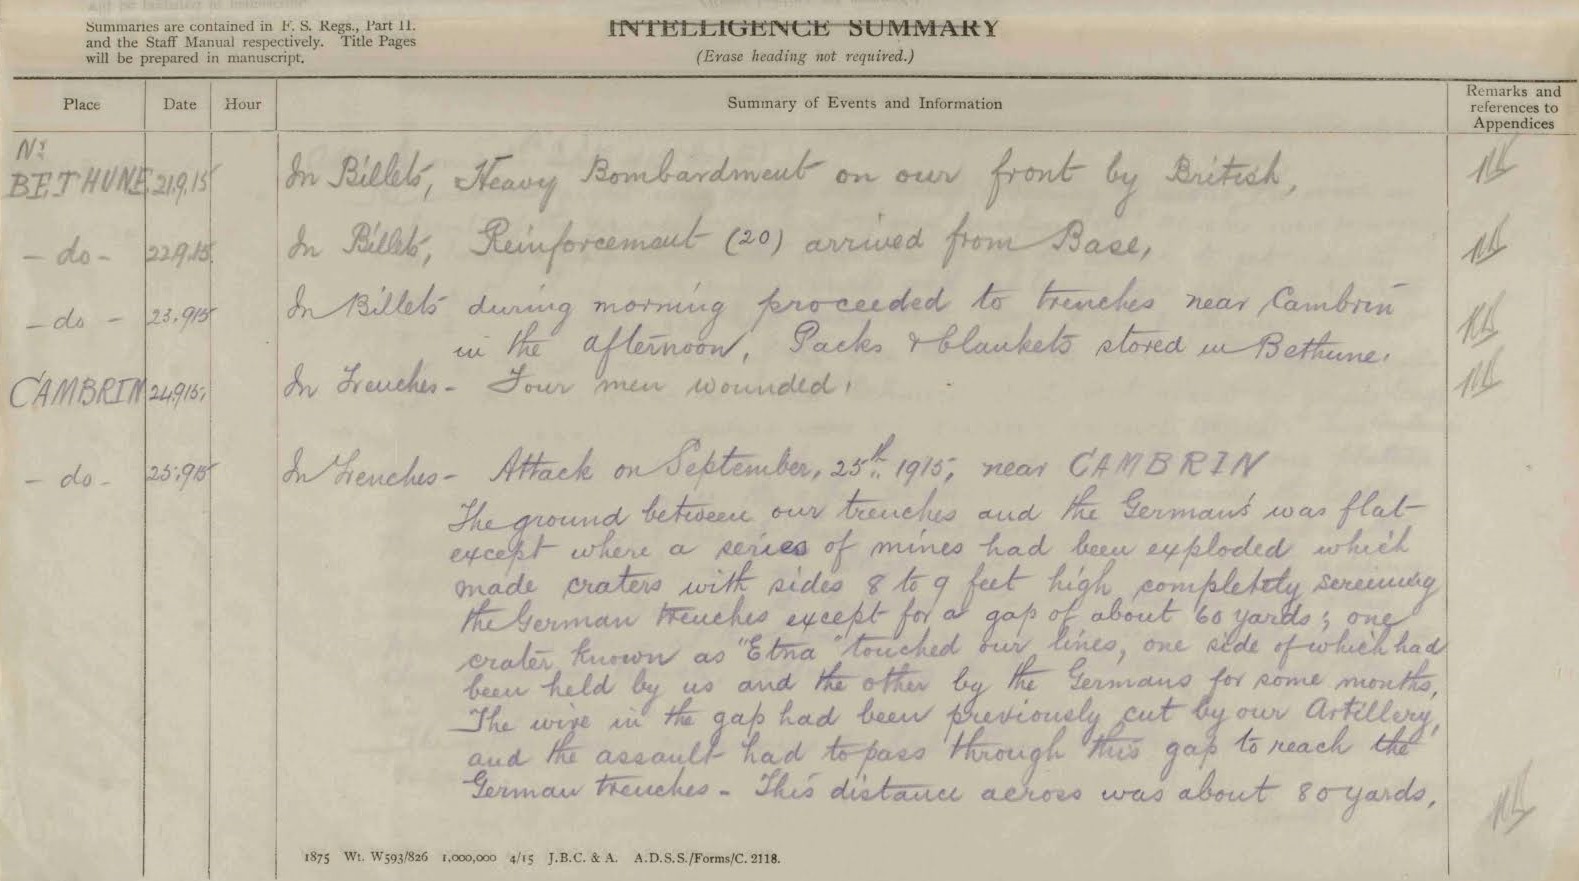 Summaries are contained in F. S. Regs., Part II.
and the Staff Manual respectively. Title Pages
will be prepared in manuscript.
INTELLIGENCE SUMMARY
(Erase heading not required.)
Place Date Hour Summary of Events and Information Remarks and references to Appendices
Nr
BETHUNE 21.9.15 In Billets, Heavy Bombardment on our front by British,
- do - 22.9.15 In Billets, Reinforcement (20) arrived from Base,
- do - 23.9.15 In Billets during morning proceeded to trenches near Cambrin
in the afternoon, Packs & blankets stored in Bethune.
CAMBRIN 24.9.15. In Trenches - Four men wounded.
- do - 25.9.15 In Trenches - Attack on September, 25th. 1915, near CAMBRIN
The ground between our trenches and the German's was flat
except where a series of mines had been exploded which
made craters with sides 8 to 9 feet high completely screening
the German trenches except for a gap of about 60 yards; one
crater known as "Etna" touched our lines, one side of which had
been held by us and the other by the Germans for some months,
The wire in the gap had been previously cut by our Artillery,
and the assault had to pass through this gap to reach the
German trenches - This distance across was about 80 yards.
1875 Wt. W593/826 1,000,000 4/15 J.B.C. & A. A.D.S.S./Forms/C. 2118.